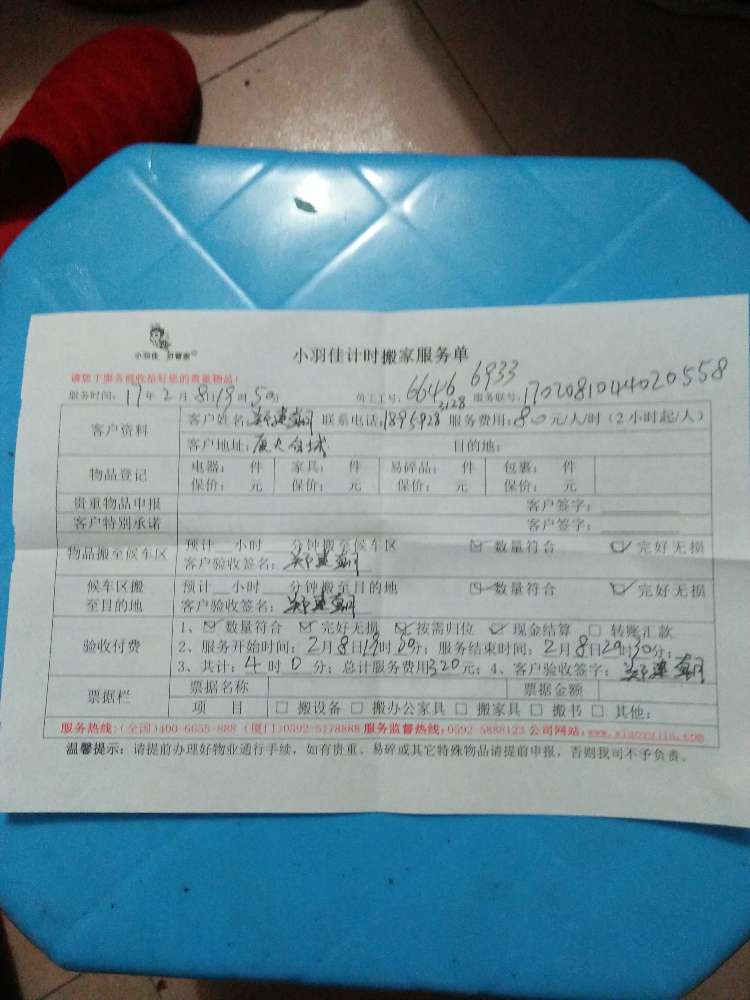 小羽佳 好管家®
小羽佳计时搬家服务单
请您于服务前收拾好您的贵重物品!
服务时间: 17年 2月 8日 19时 50分 员工工号: 6646 6933 3128 服务账号: 1702081044020558
客户资料 客户姓名: 联系电话: 服务费用: 80元/人/时(2小时起/人)
客户地址: 目的地:
物品登记 电器: 件 家具: 件 易碎品: 件 包裹: 件
保价: 元 保价: 元 保价: 元 保价: 元
贵重物品申报 客户签字:
客户特别承诺 客户签字:
物品搬至候车区 预计 小时 分钟搬至候车区 ☑ 数量符合 ☑ 完好无损
客户验收签名:
候车区搬至目的地 预计 小时 分钟搬至目的地 ☑ 数量符合 ☑ 完好无损
客户验收签名:
验收付费 1、☑ 数量符合 ☑ 完好无损 ☑ 按需归位 ☑ 现金结算 □ 转账汇款
2、服务开始时间: 2月8日19时 分; 服务结束时间: 2月8日 时30分;
3、共计: 4时 0分; 总计服务费用320元; 4、客户验收签字:
票据栏 票据名称 票据金额
项 目 □ 搬设备 □ 搬办公家具 □ 搬家具 □ 搬书 □ 其他:
服务热线:(全国)400-6655-888 (厦门)0592-5178888 服务监督热线:0592-5888123 公司网站:www.xiaoyujia.com
温馨提示: 请提前办理好物业通行手续, 如有贵重、易碎或其它特殊物品请提前申报, 否则我司不予负责。